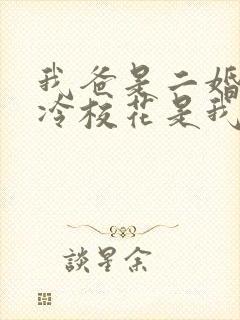 我爸是二婚
冷校花是我
談星余